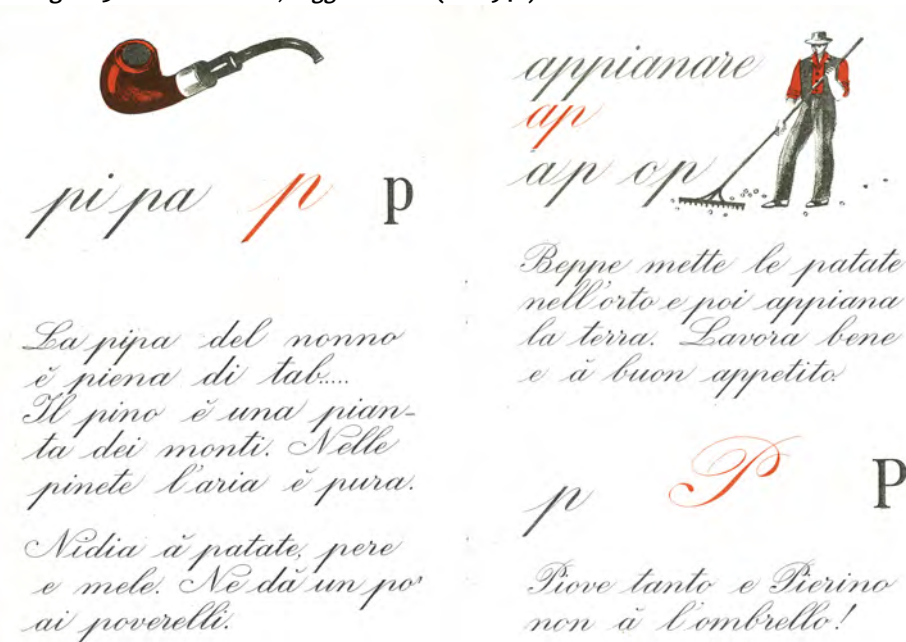 pi pa p p
La pipa del nonno
ě piena di tab.....
Il pino ě una pian-
ta dei monti. Nelle
pinete l'aria ě pura.
Nidia ă patate, pere
e mele. Ne dă un po'
ai poverelli.
appianare
ap
ap op
Beppe mette le patate
nell'orto e poi appiana
la terra. Lavora bene
e ă buon appetito.
p P P
Piove tanto e Pierino
non ă l'ombrello!